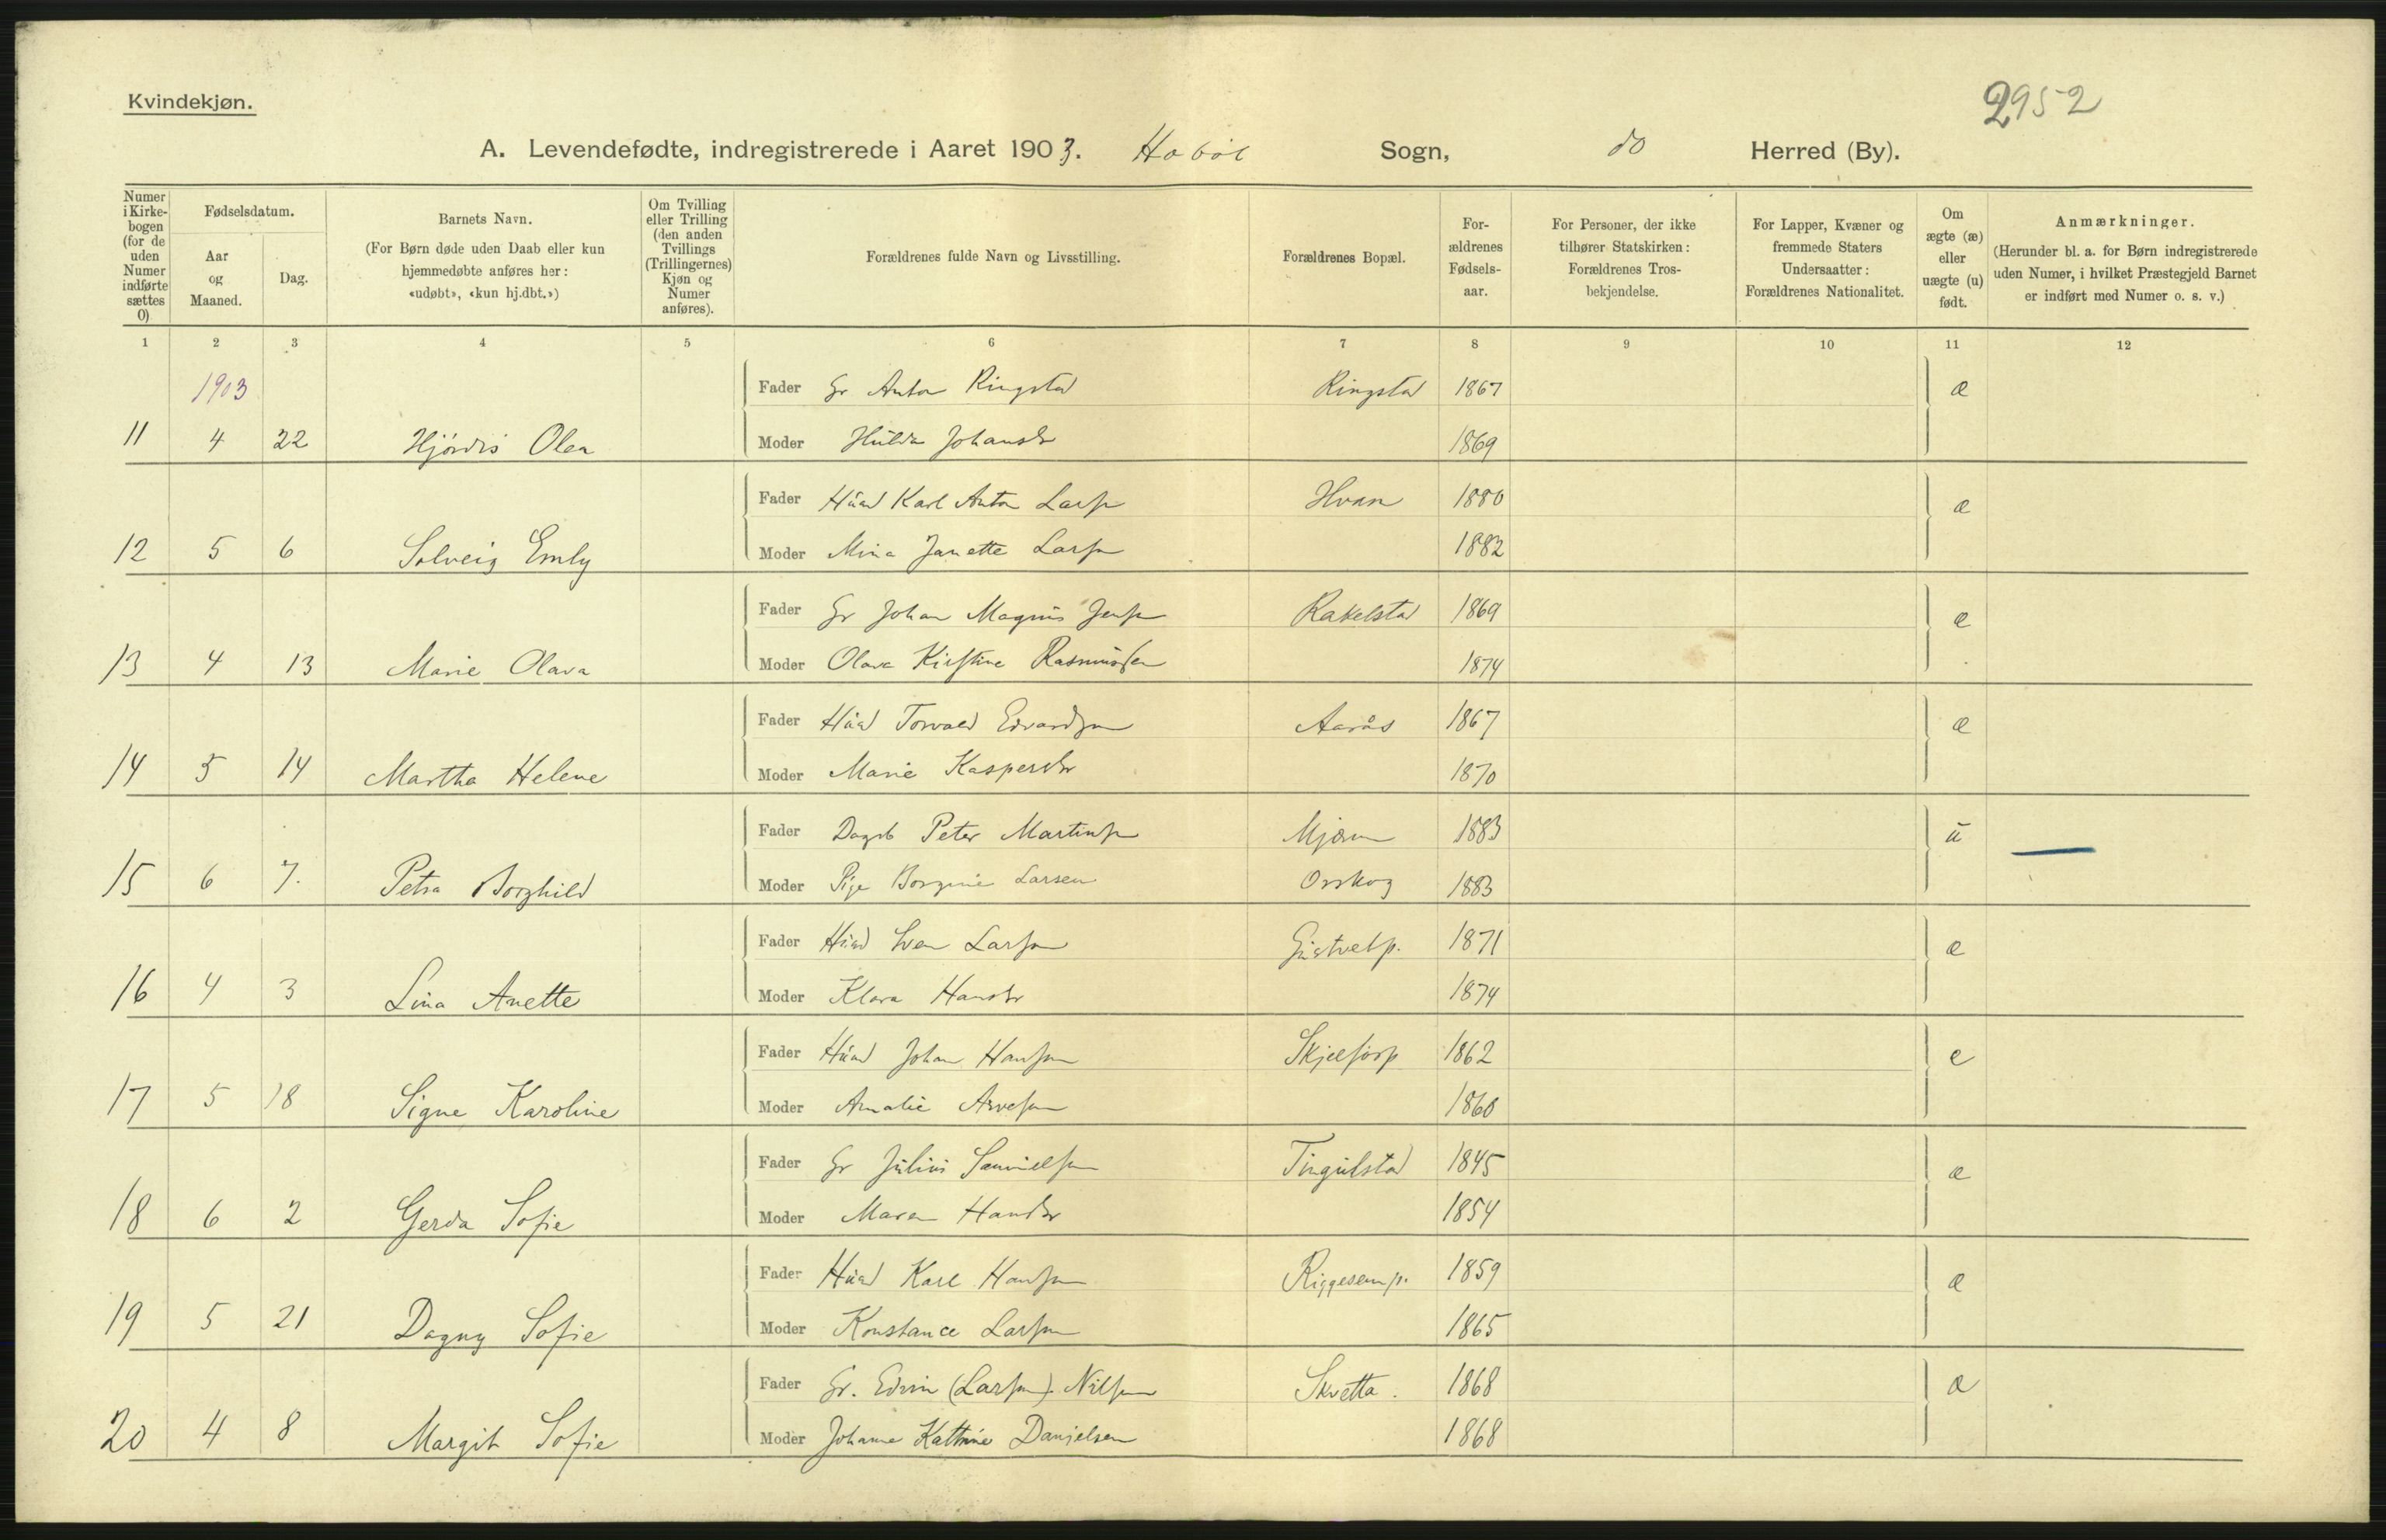 Kvindekjøn.
2952
A. Levendefødte, indregistrerede i Aaret 1903. Høbøl Sogn, do Herred (By).
Numer i Kirke-bogen (for de uden Numer indførte sættes 0)
Fødselsdatum.
Aar og Maaned.
Dag.
Barnets Navn.
(For Børn døde uden Daab eller kun hjemmedøbte anføres her: «udøbt», «kun hj.dbt.»)
Om Tvilling eller Trilling (den anden Tvillings (Trillingernes) Kjøn og Numer anføres).
Forældrenes fulde Navn og Livsstilling.
Forældrenes Bopæl.
For-ældrenes Fødsels-aar.
For Personer, der ikke tilhører Statskirken: Forældrenes Tros-bekjendelse.
For Lapper, Kvæner og fremmede Staters Undersaatter: Forældrenes Nationalitet.
Om ægte (æ) eller uægte (u) født.
Anmærkninger.
(Herunder bl. a. for Børn indregistrerede uden Numer, i hvilket Præstegjeld Barnet er indført med Numer o. s. v.)
1 2 3 4 5 6 7 8 9 10 11 12
1903 Fader Gr Anton Ringstad Ringstad 1867 æ
11 4 22 Hjørdis Olea Moder Hulda Johansdr 1869
Fader Husm Karl Anton Larsen Hvam 1880 æ
12 5 6 Solveig Emly Moder Mina Janette Larsen 1882
Fader Gr Johan Magnus Jensen Rakelstad 1869 æ
13 4 13 Marie Olava Moder Olava Kirstine Rasmussen 1874
Fader Husm Torvald Edvardsen Aarås 1867 æ
14 5 14 Martha Helene Moder Marie Kaspersdr 1870
Fader Dagarb Peter Martinsen Mjærum 1883 u
15 6 7. Petra Borghild Moder Pige Borgine Larsen Orskog 1883
Fader Husm Larsen 1871 æ
16 4 3 Lina Anette Moder Klara Hansdr 1874
Fader Husm Johan Hansen 1862 æ
17 5 18 Signe Karoline Moder Amalie Arvesen 1860
Fader Gr Julius Samuelsen Tingulstad 1845 æ
18 6 2 Gerda Sofie Moder Maren Hansdr 1854
Fader Husm Karl Hansen Riggesemp. 1859 æ
19 5 21 Dagny Sofie Moder Konstance Larsen 1865
Fader Gr. Edvin (Larsen) Nilsen Skvetta. 1868 æ
20 4 8 Margit Sofie Moder Johanne Kathrine Danielsen 1868